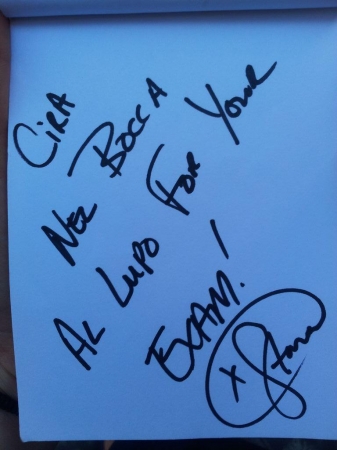 CIRA
NEL BOCCA
AL LUPO FOR YOUR
EXAM!